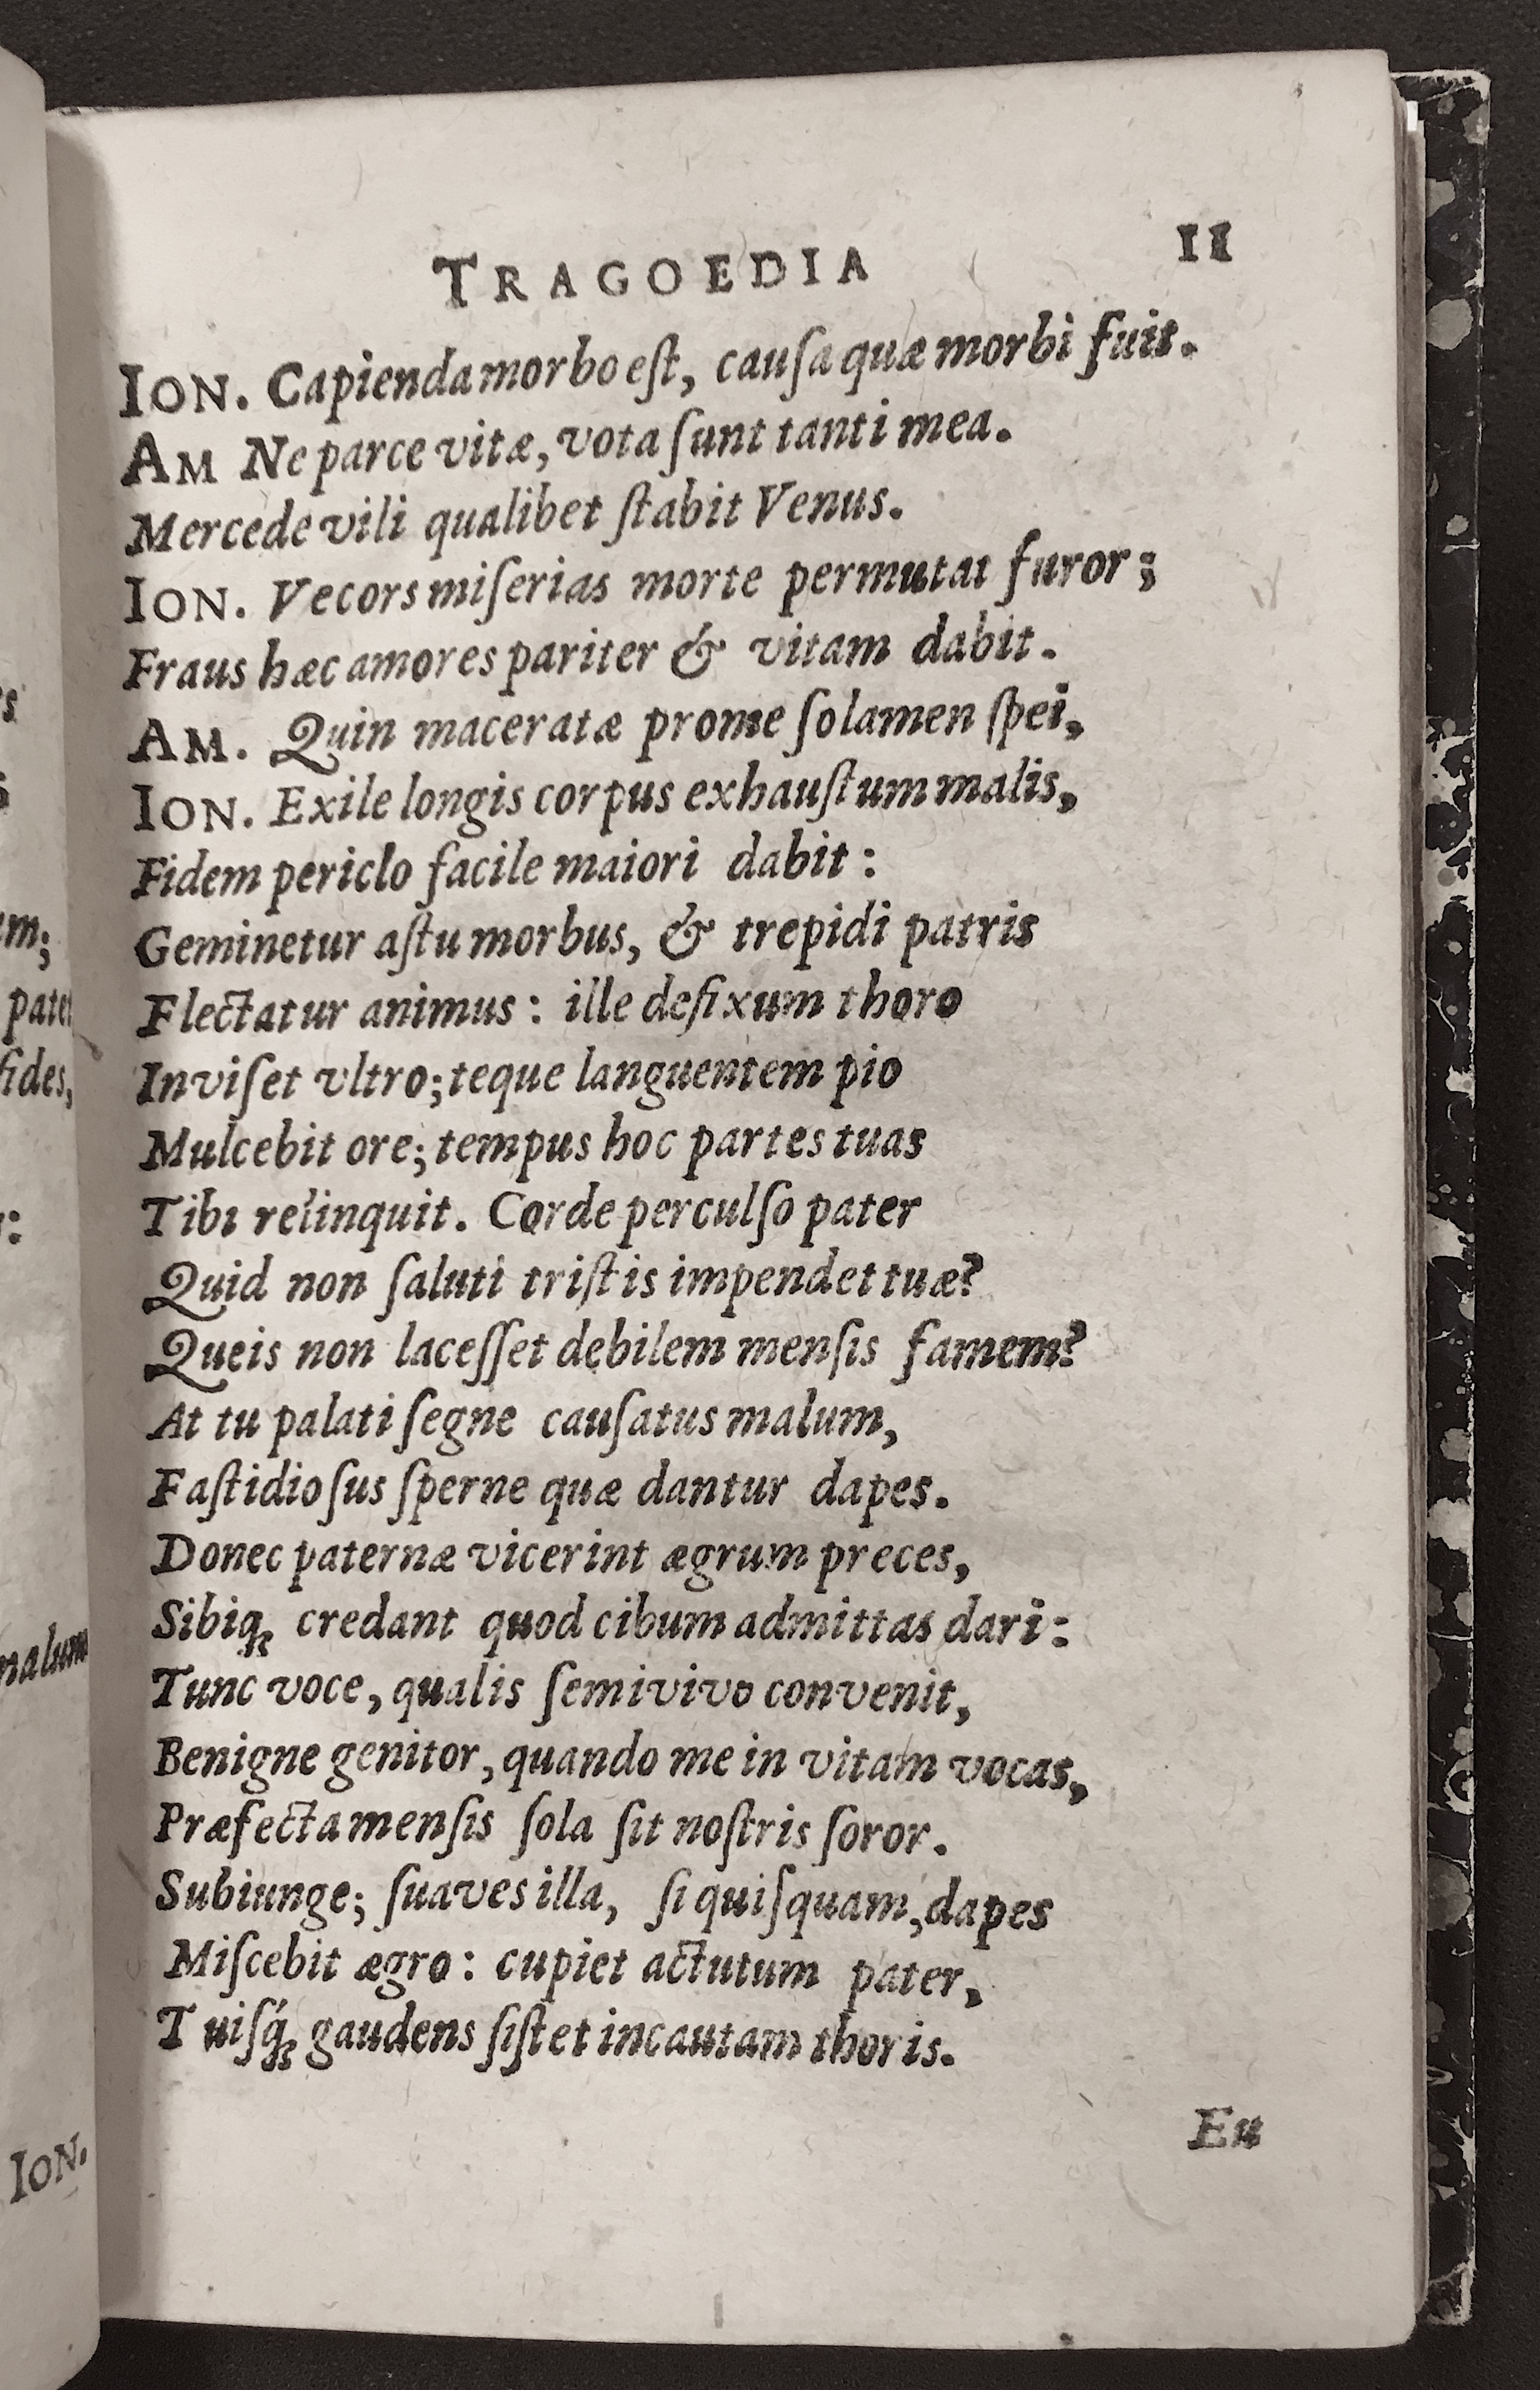 TRAGOEDIA 11
ION. Capienda morbo eſt, cauſa quæ morbi fuit.
AM Ne parce vitæ, vota ſunt tanti mea.
Mercede vili qualibet ſtabit Venus.
ION. Vecors miſerias morte permutat furor;
Fraus hæc amores pariter & vitam dabit.
AM. Quin maceratæ prome ſolamen ſpei,
ION. Exile longis corpus exhauſtum malis,
Fidem periclo facile maiori dabit:
Geminetur aſtu morbus, & trepidi patris
Flectatur animus: ille defixum thoro
Inviſet vltro; teque languentem pio
Mulcebit ore; tempus hoc partes tuas
Tibi relinquit. Corde perculſo pater
Quid non ſaluti triſtis impendet tuæ?
Queis non laceſſet debilem menſis famem?
At tu palati ſegne cauſatus malum,
Faſtidioſus ſperne quæ dantur dapes.
Donec paternæ vicerint ægrum preces,
Sibiq; credant quod cibum admittas dari:
Tunc voce, qualis ſemivivo convenit,
Benigne genitor, quando me in vitam vocas,
Præfecta menſis ſola ſit noſtris ſoror.
Subiunge; ſuaves illa, ſi quiſquam, dapes
Miſcebit ægro: cupiet actutum pater,
Tuiſq́; gaudens ſiſtet incautam thoris.
Eu
um;
fides,
malum
ION.